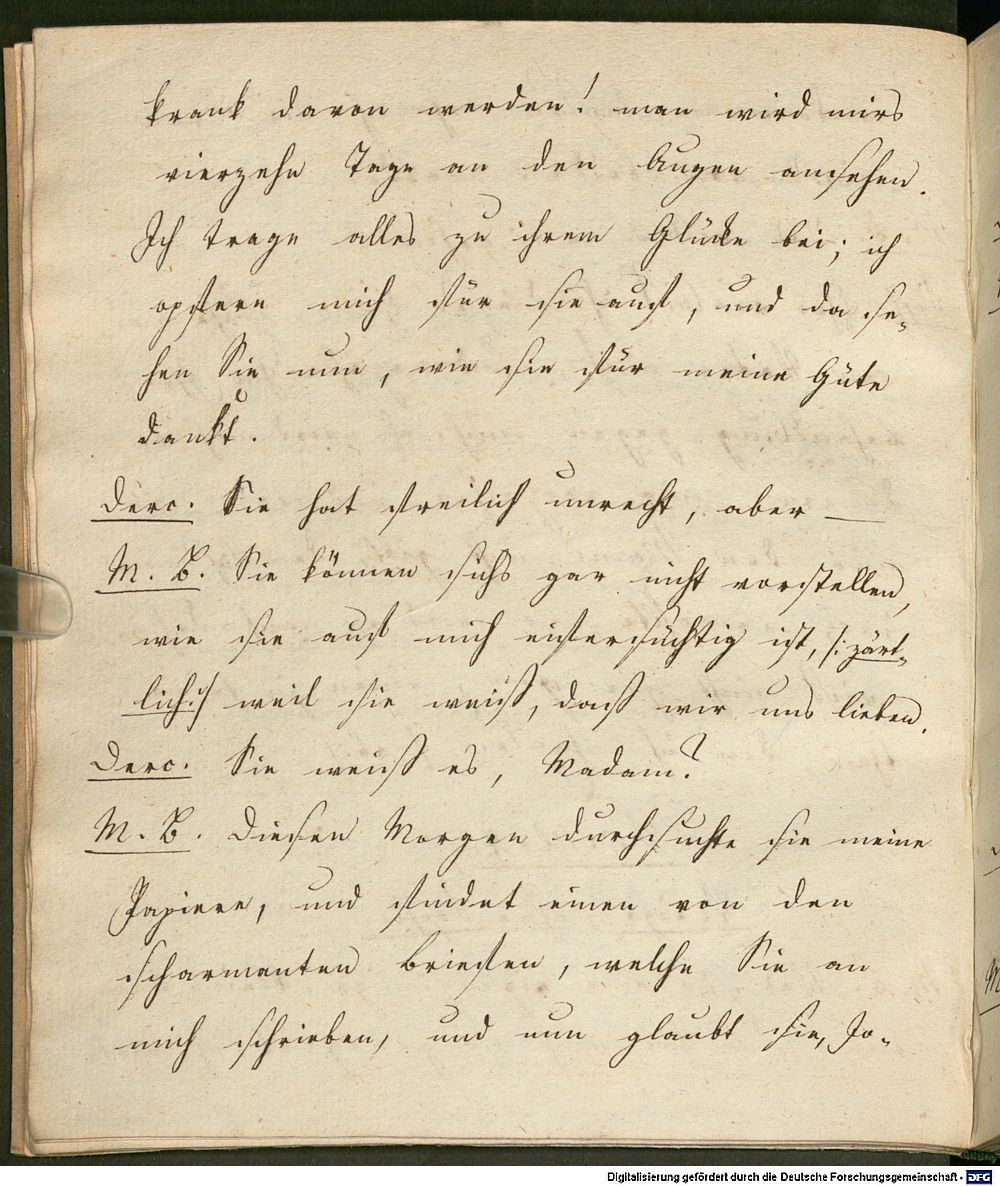 krank davon werden! man wird mirs
vierzehn Tage an den Augen ansehen.
Ich trage alles zu ihrem Glücke bei; ich
opfere mich für sie auf, und da se-
hen Sie nun, wie sie für meine Güte
dankt.
Derc. Sie hat freilich unrecht, aber —
M. B. Sie können sichs gar nicht vorstellen,
wie sie auf mich eifersüchtig ist, /: zärt-
lich :/ weil sie weiß, daß wir uns lieben.
Derc. Sie weiß es, Madam?
M. B. Diesen Morgen durchsuchte sie meine
Papiere, und findet einen von den
scharmanten Briefen, welche Sie an
mich schrieben, und nun glaubt sie, Jo-
Digitalisierung gefördert durch die Deutsche Forschungsgemeinschaft - DFG